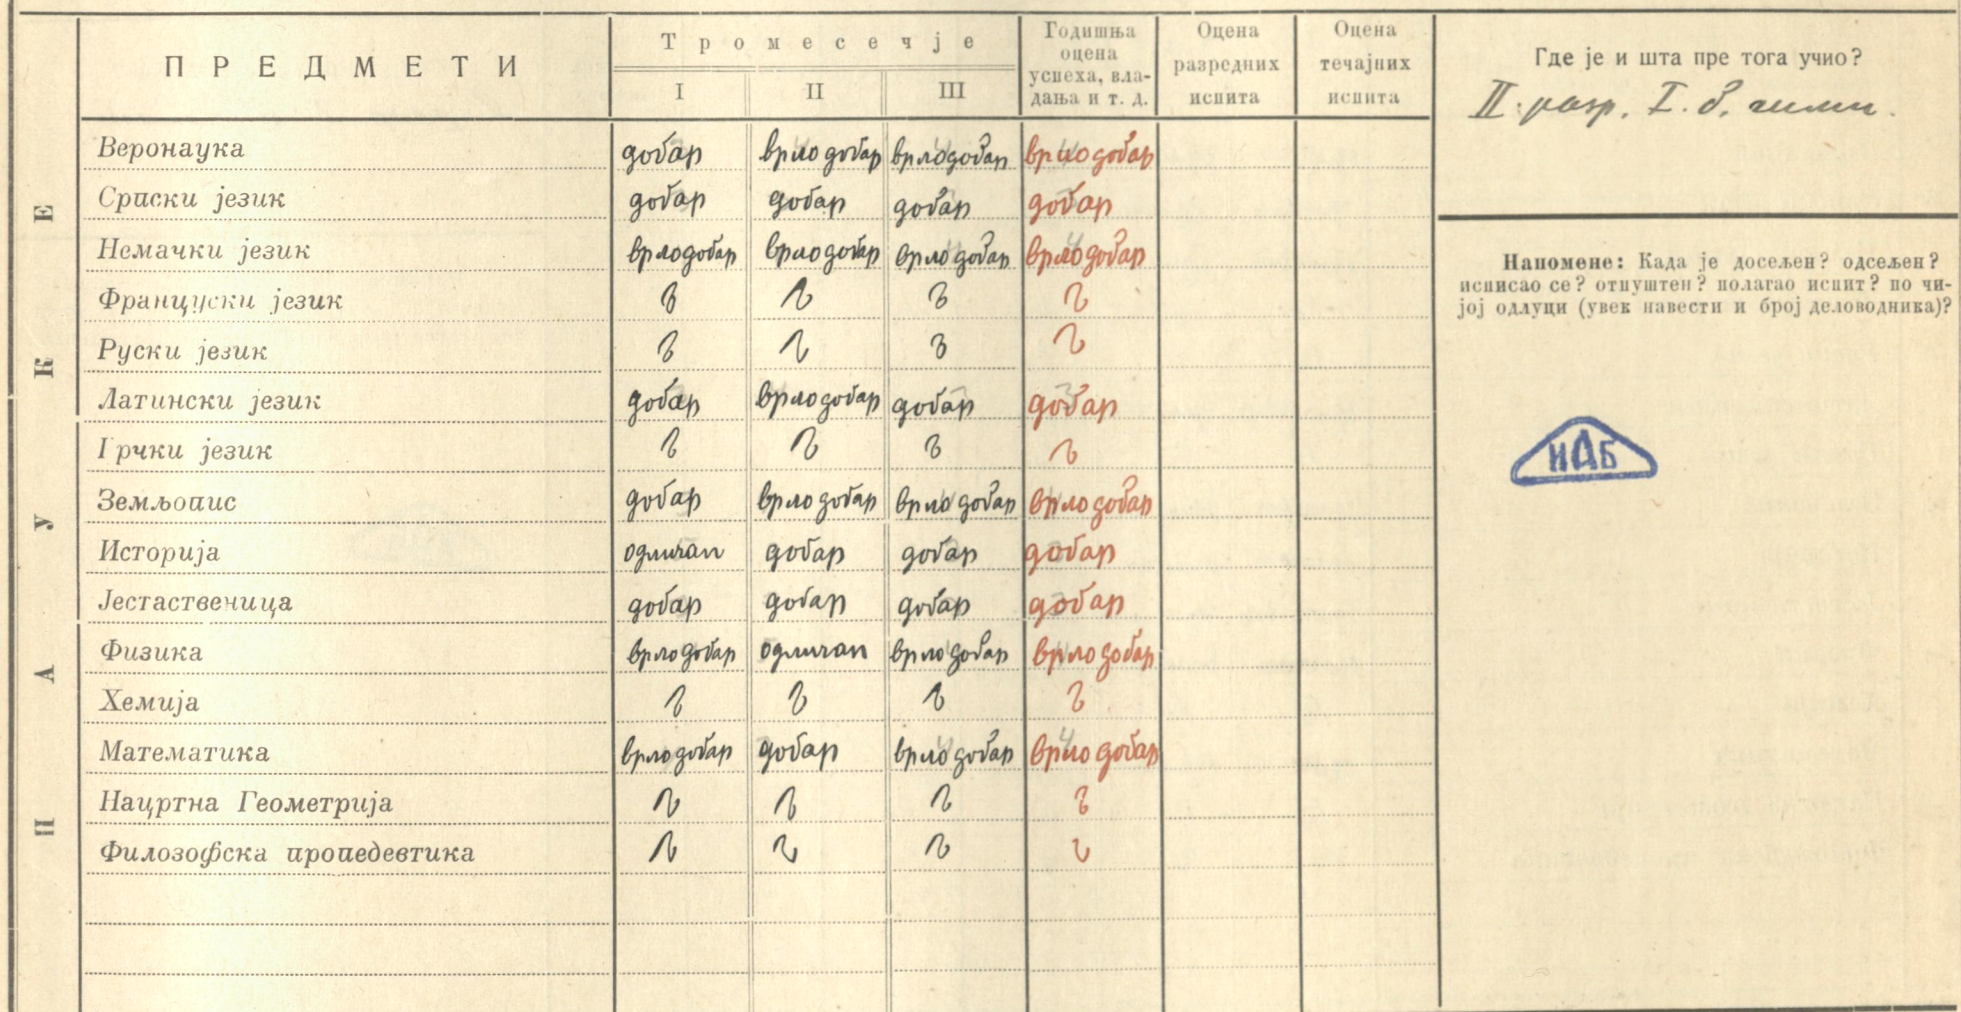 ПРЕДМЕТИ
Тромесечје
I II III
Годишња оцена успеха, вла-дања и т. д.
Оцена разредних испита
Оцена течајних испита
Где је и шта пре тога учио?
II разр. I. б. гимн.
НАУКЕ
Веронаука добар врло добар врло добар врло добар
Српски језик добар добар добар добар
Немачки језик врло добар врло добар врло добар врло добар
Француски језик
Руски језик
Латински језик добар врло добар добар добар
Грчки језик
Земљопис добар врло добар врло добар врло добар
Историја одличан добар добар добар
Јестаственица добар добар добар добар
Физика врло добар одличан врло добар врло добар
Хемија
Математика врло добар добар врло добар врло добар
Нацртна Геометрија
Филозофска пропедевтика
Напомене: Када је досељен? одсељен?
исписао се? отпуштен? полагао испит? по чи-
јој одлуци (увек навести и број деловодника)?
ИАБ